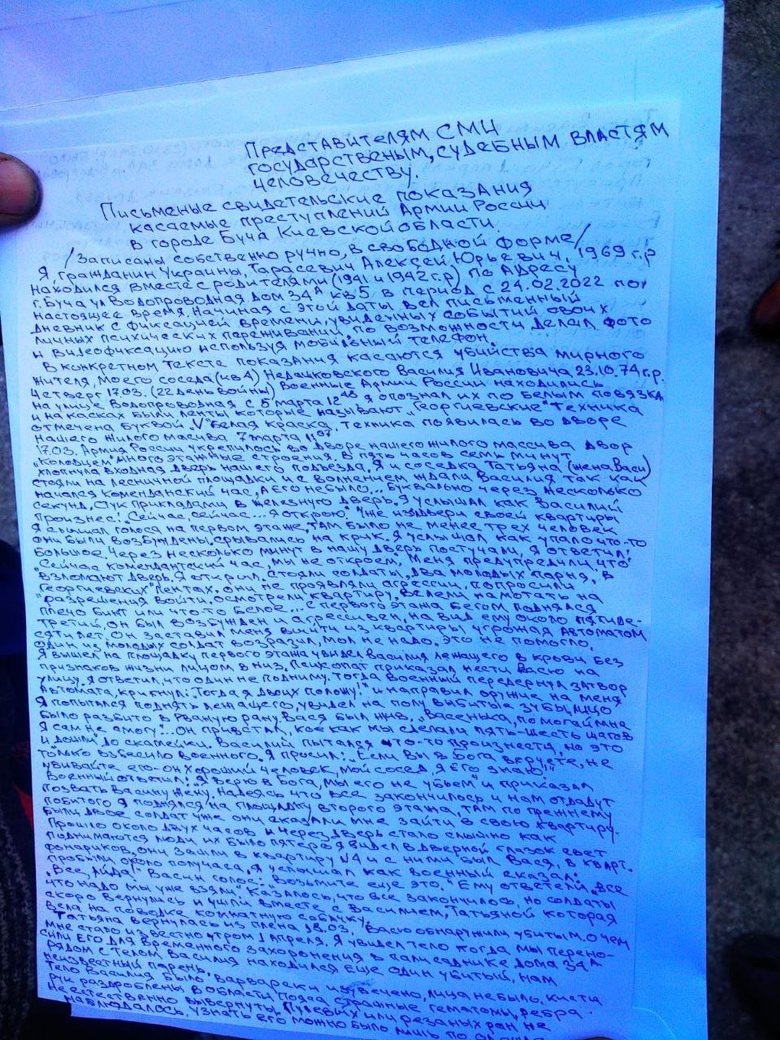 Представителям СМИ
государственым, судебным властям
человечеству.
Письменые свидетельские показания
касаемые преступлений Армии России
в городе Буча Киевской области.
/Записаны собственно ручно, в свободной форме/
Я, гражданин Украины, Тарасевич Алексей Юрьевич, 1969 г.р
находился вместе с родителями (1941 и 1942 г.р) по адресу
г. Буча ул Водопроводная дом 34А кв 5 в период с 24.02.2022 по
настоящее время. Начиная с этой даты вел письменный
дневник с фиксацией времени, увиденных событий своих
личных психических переживаний, по возможности делал фото
и видеофиксацию используя мобильный телефон.
В конкретном тексте показания касаются убийства мирного
жителя, моего соседа (кв 4) Недашковского Василия Ивановича, 23.10.74 г.р.
Четверг 17.03. (22 день войны) Военные Армии России находились
на улице Водопроводная с 5 марта 12 я опознал их по белым повязка
и на касках были ленты которые называют "Георгиевские" Техника
отмечена буквой V белая краска, техника появилась во дворе
нашего жилого масива 7 марта 11
17.03. Армия России укрепилось во дворе нашего жилого массива двор
"колодцем" много этажные строения. В пять часов семь минут
хлопнула входная дверь нашего подъезда, я и соседка Татьяна (жена Васи)
стояли на лесничной площадки и с волнением ждали Василия так как
начался комендантский час, а его не было, буквально через несколько
секунд, стук прикладами в железную дверь, я услышал как Василий
произнес, "Сейчас, сейчас... я открою" уже из двери своей квартиры
я слышал голоса на первом этаже, там было не менее трех человек
они были возбуждены, срывались на крик. Я услышал как упало что-то
большое. Через несколько минут в нашу дверь постучали, я ответил:
"Сейчас комендантский час, мы не откроем" Меня предупредили, что
взломают дверь. Я открыл, стояли солдаты, два молодых парня, в
Георгиевских лентах, они не проявляли агрессии, попросили
разрешения войти, осмотрели квартиру, велели намотать на
плечо бинт или что-то белое... с первого этажа бегом поднялся
третий, он был возбужден и агрессивен, на вид ему около пятиде-
сяти лет. Он заставил меня выйти из квартиры угрожая автоматом
один из молодых солдат возразил, мол не надо, это не помогло.
Я вышел на площадку первого этажа и увидел Василия лежащего в крови без
признаков жизни лицом в низ, психопат приказал нести Васю на
улицу, я ответил, что один не подниму. Тогда военный передернул затвор
автомата, крикнул: "Тогда я двоих положу!" и направил оружие на меня
Я попытался поднять лежащего, увидел на полу выбитые зубы, лицо
было разбито в рваную рану Вася был жив, "Васенька, помогай мне
я сам не смогу!" Он привстал, кое как мы сделали пять-шесть шагов
и дошли до скамейки. Василий пытался что-то произнести, но это
только взбесило военного. Я просил: "Если вы в Бога веруете, не
убивайте его. Он хороший человек, мой сосед, я его знаю!"
Военный ответил: "Я верю в Бога, мы его не убьем" и приказал
позвать Васину жену. Надеясь что все закончилось и нам отдадут
побитого я поднялся на площадку второго этажа, там по прежнему
были двое солдат уже они сказали мне зайти в свою квартиру.
Прошло около двух часов и через дверь стало слышно как
поднимаются люди их было пятеро я видел в дверной глазок свет
фонариков, они зашли в квартиру №4 и с ними был Вася, в кварт.
пробыли около получаса, я услышал как военный сказал:
"Все, айда" Васин голос: "Возьмите еще это." Ему ответили, все
что надо мы уже взяли" Казалось, что все закончилось, но солдаты
скоро вернулись и ушли вместе с Василием, Татьяной которая
вела на поводке комнатную собачку.
Татьяна вернулась из плена 18.03. Васю обнаружили убитым, о чем
мне стало известно утром 1 апреля. Я увидел тело когда мы перено-
сили его для временного захоронения в палисаднике дома 34А.
рядом с телом Василия находился еще один убитый, нам
неизвестный парень.
Тело Василия было варварски изувечено, лица не было, кисти
рук раздроблены в области пояса страшные гематомы, ребра
неестественно вывернуты, пулевых или резаных ран не
наблюдалось, узнать его можно было лишь по